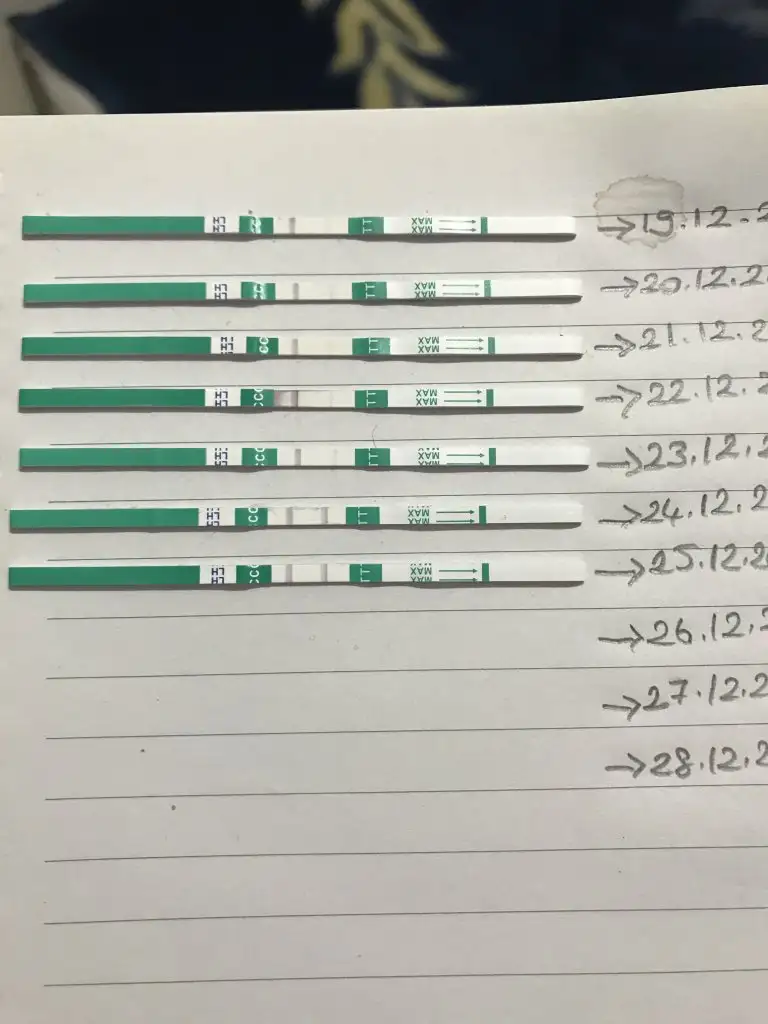 LH CCC TT MAX MAX →19.12.2
LH CCC TT MAX MAX →20.12.2
LH CCC TT MAX MAX →21.12.2
LH CCC TT MAX MAX →22.12.2
LH CCC TT MAX MAX →23.12.2
LH CCC TT MAX MAX →24.12.2
LH CCC TT MAX MAX →25.12.2
→26.12.2
→27.12.2
→28.12.2